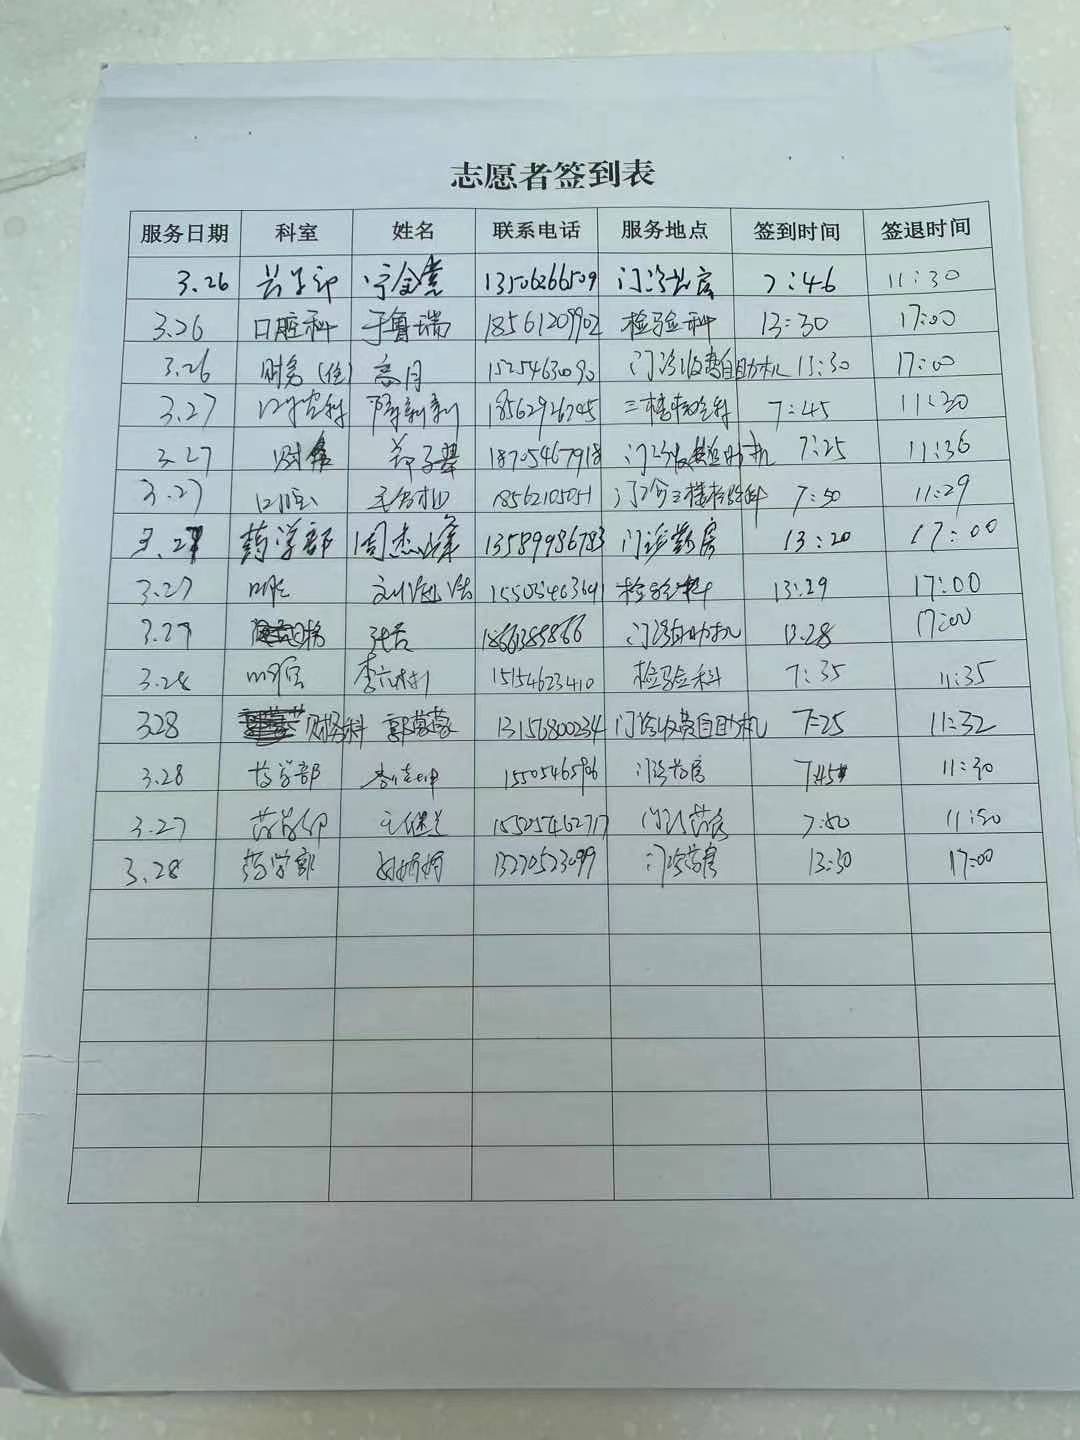 志愿者签到表
服务日期 科室 姓名 联系电话 服务地点 签到时间 签退时间
3.26 药学部 宁金堂 13506266509 门诊药房 7:46 11:30
3.26 口腔科 于鲁瑞 18561209902 检验科 13:30 17:00
3.26 财务(住) 高月 15254630090 门诊收费自助机 13:30 17:00
3.27 口腔科 18562926745 三楼检验科 7:45 11:30
3.27 财务 郑子翠 18705467918 7:25 11:36
3.27 口腔 18562105051 门诊三楼检验科 7:50 11:29
3.27 药学部 周杰峰 13589986783 门诊药房 13:20 17:00
3.27 口腔 15505463641 检验科 13:29 17:00
3.27 18661385866 门诊自助机 13:28 17:00
3.28 口腔 15154623410 检验科 7:35 11:35
3.28 财务科 郭蒙蒙 13156800234 门诊收费自助机 7:25 11:32
3.28 药学部 门诊药房 7:45 11:30
3.27 药学部 15505462717 门诊药房 7:50 11:50
3.28 药学部 13270523099 门诊药房 13:30 17:00